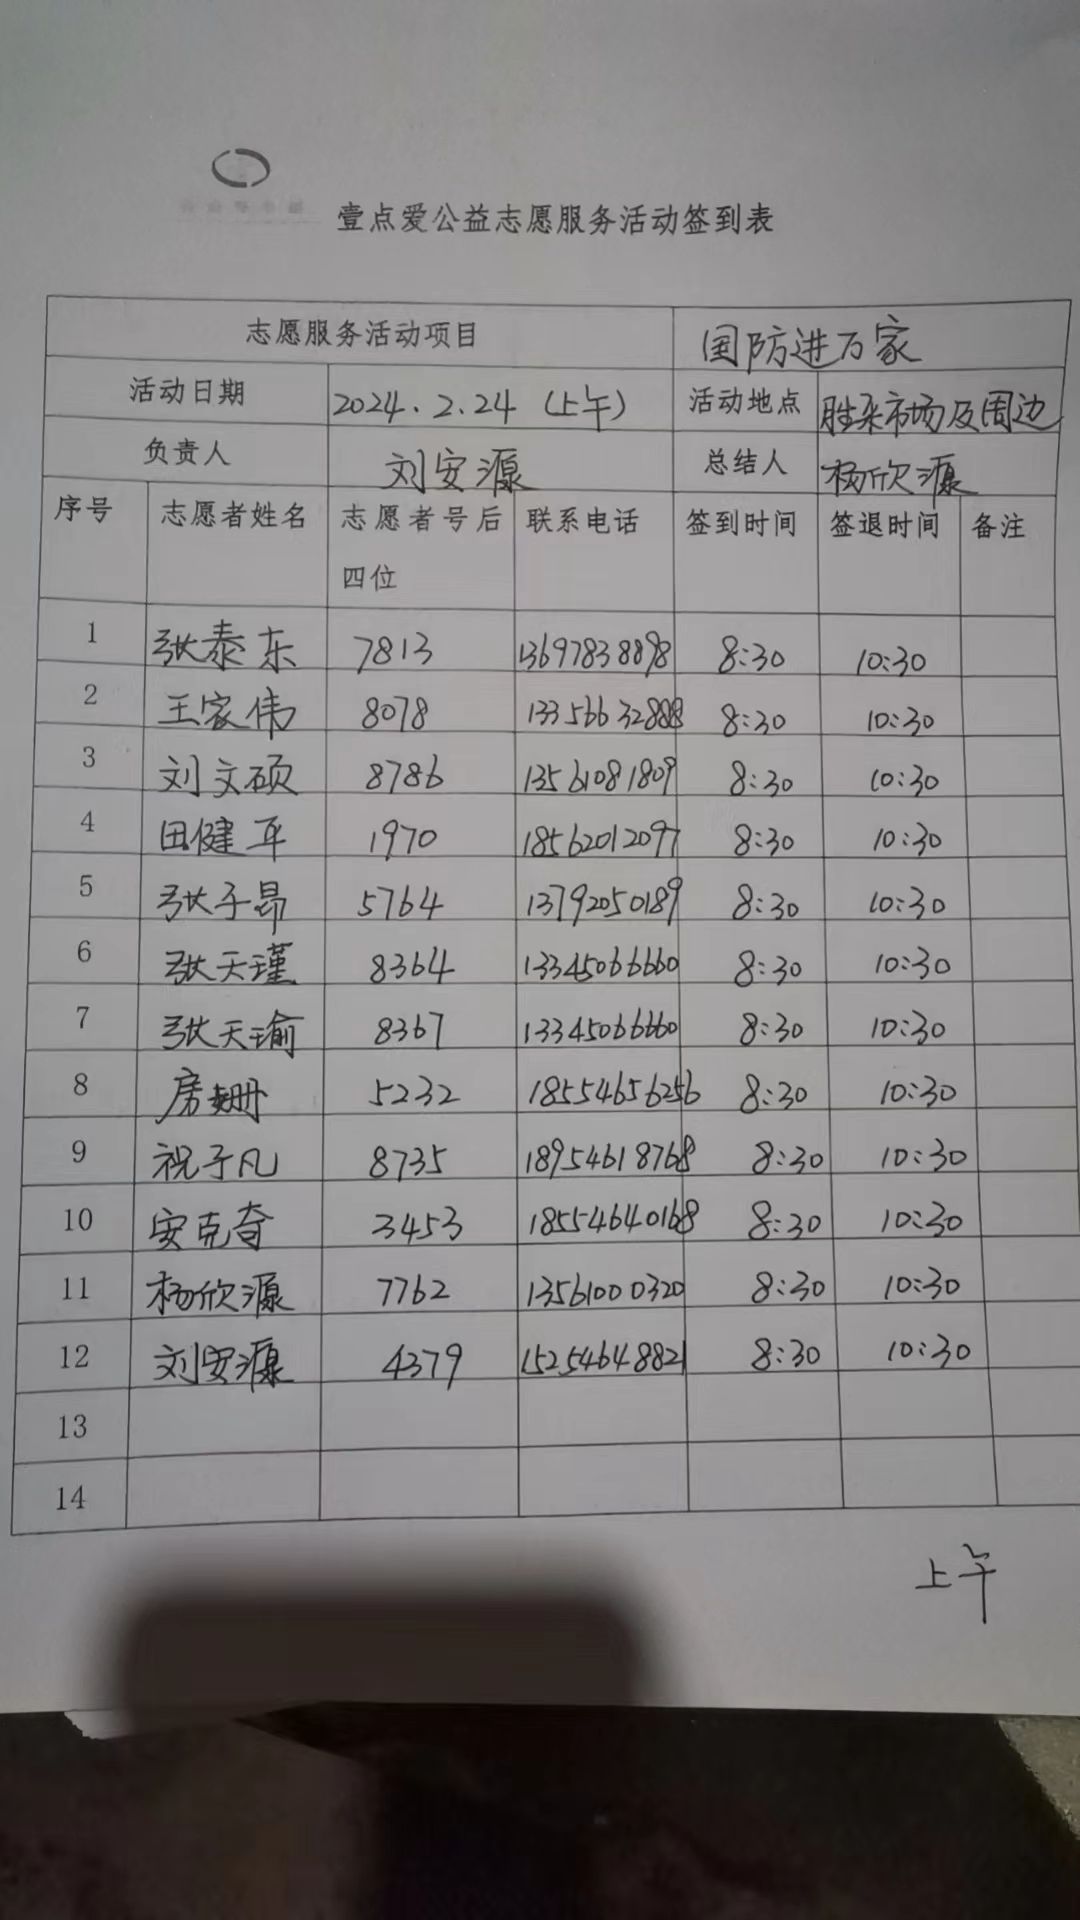 壹点爱公益志愿服务活动签到表
志愿服务活动项目 国防进万家
活动日期 2024.2.24（上午） 活动地点 胜采市场及周边
负责人 刘安源 总结人 杨欣源
序号 志愿者姓名 志愿者号后四位 联系电话 签到时间 签退时间 备注
1 张泰东 7813 13697838898 8:30 10:30
2 王家伟 8078 13356632888 8:30 10:30
3 刘文硕 8786 13561081809 8:30 10:30
4 田健平 1970 18562012097 8:30 10:30
5 张子昂 5764 13792050189 8:30 10:30
6 张天瑾 8364 13345066660 8:30 10:30
7 张天瑜 8367 13345066660 8:30 10:30
8 房姗 5232 18554656256 8:30 10:30
9 祝子凡 8735 18954618768 8:30 10:30
10 安克奇 3453 18554640168 8:30 10:30
11 杨欣源 7762 13561000320 8:30 10:30
12 刘安源 4379 15254648821 8:30 10:30
13
14
上午